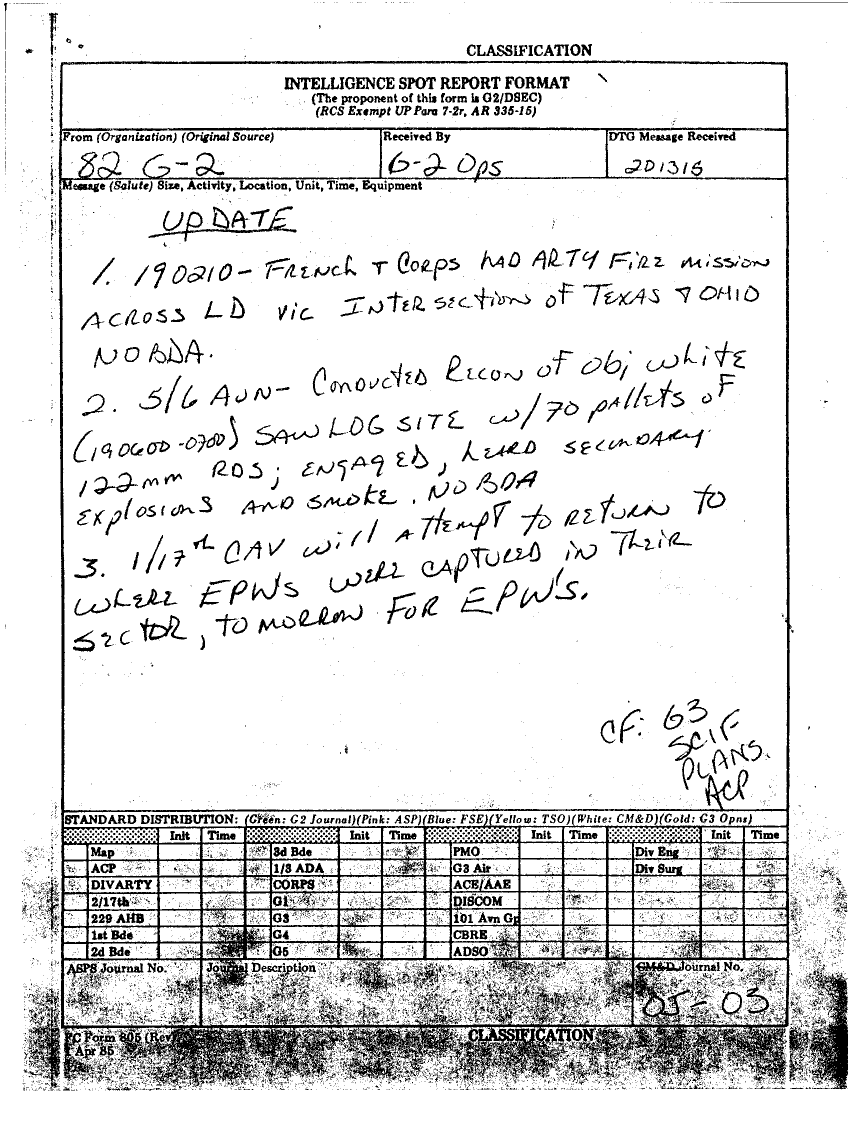 CLASSIFICATION
INTELLIGENCE SPOT REPORT FORMAT
(The proponent of this form is G2/DSEC)
(RCS Exempt UP Para 7-2r, AR 335-15)
From (Organization) (Original Source) Received By DTG Message Received
82 G-2 G-2 Ops 201315
Message (Salute) Size, Activity, Location, Unit, Time, Equipment
UPDATE
1. 190210 - FRENCH & CORPS HAD ARTY FIRE mission
ACROSS LD vic INTERSECTION of TEXAS & OHIO
NO BDA.
2. 5/6 AVN - CONDUCTED RECON OF Obj WHITE
(190600-0700) SAW LOG SITE w/70 pallets of
122mm RDS; ENGAGED, HEARD SECONDARY
EXPLOSIONS AND SMOKE. NO BDA
3. 1/17th CAV will ATTEMPT to RETURN TO
WHERE EPW'S WERE CAPTURED IN THEIR
SECTOR, TOMORROW FOR EPW'S.
CF: G3
SCIF
PLANS
ACP
STANDARD DISTRIBUTION: (Green: G2 Journal)(Pink: ASP)(Blue: FSE)(Yellow: TSO)(White: CM&D)(Gold: G3 Opns)
Init Time Init Time Init Time Init Time
Map 3d Bde PMO Div Eng
ACP 1/3 ADA G3 Air Div Surg
DIVARTY CORPS ACE/AAE
2/17th G1 DISCOM
229 AHB G3 101 Avn Gp
1st Bde G4 CBRE
2d Bde G5 ADSO
ASPS Journal No. Journal Description CM&D Journal No.
05-03
FC Form 805 (Rev) CLASSIFICATION
1 Apr 85